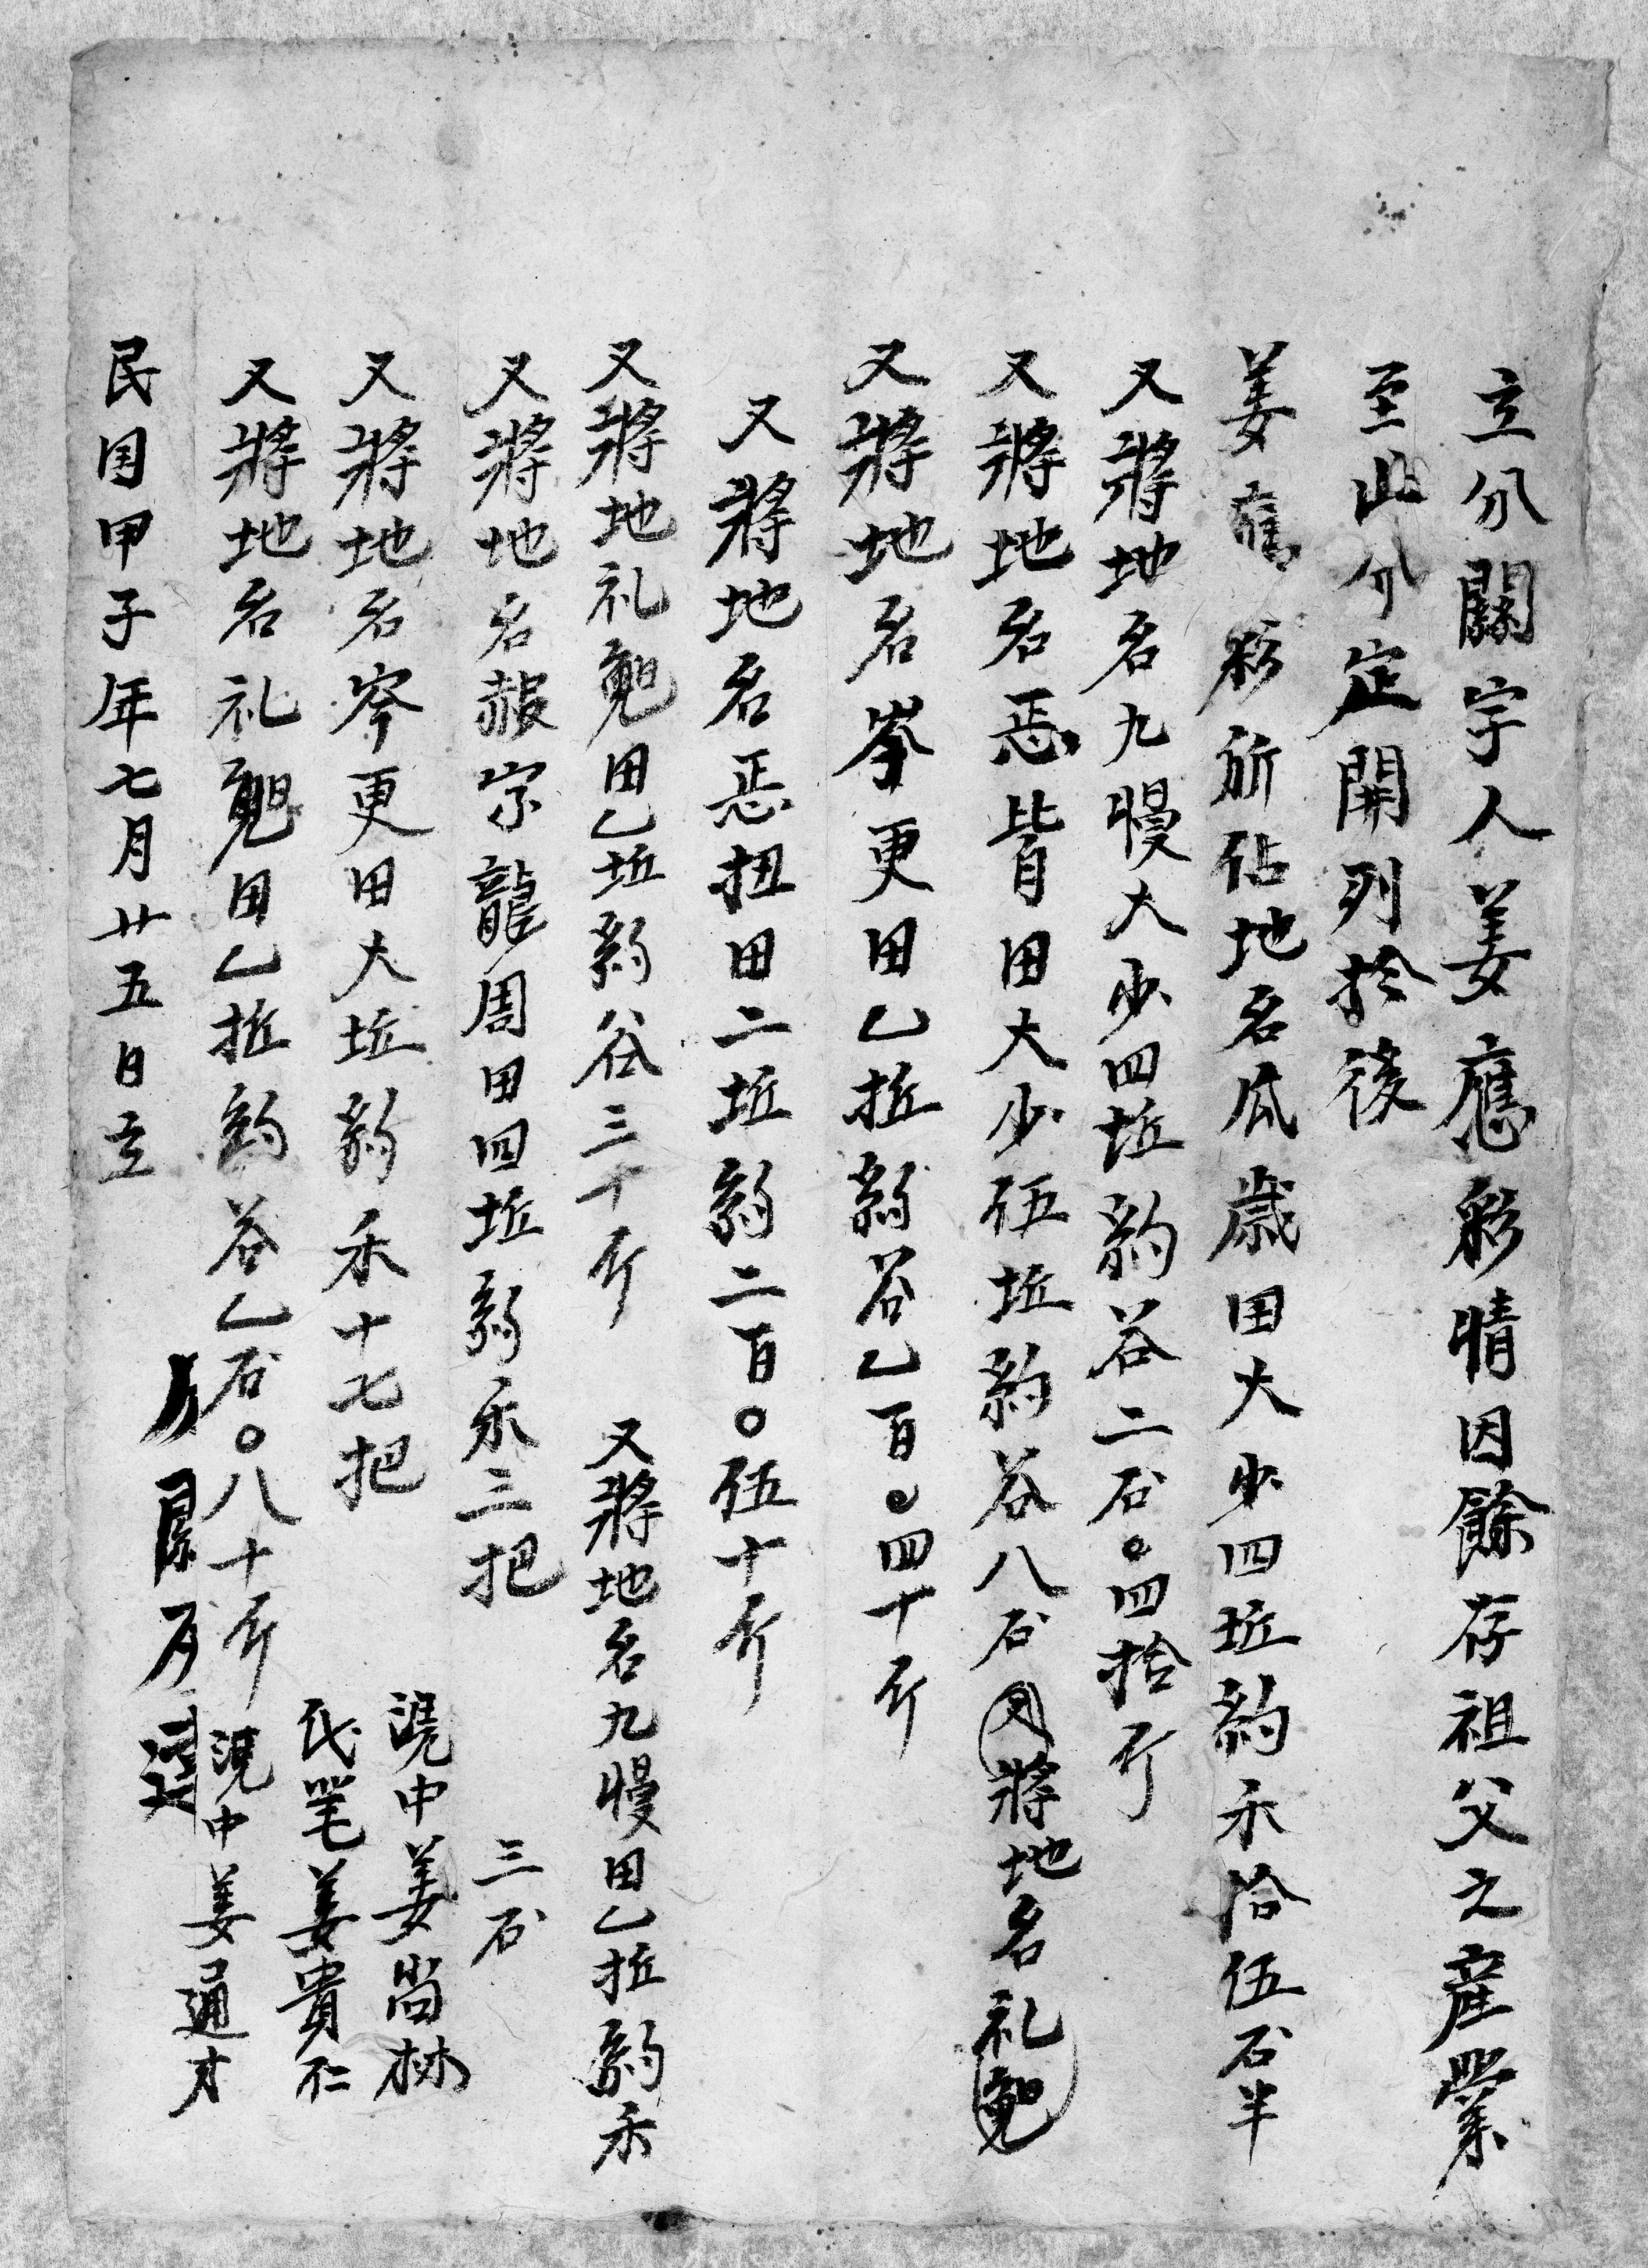 立分關字人姜應彩情因餘存祖父之産業
至此分定開列於後
姜應彩所佔地名瓜歲田大少四坵約禾拾伍石半
又將地名九慢大少四坵約谷二石〇四拾斤
又將地名惡背田大少伍坵約谷八石 又將地名礼
又將地名岑更田乙坵約谷乙百〇四十斤
又將地名惡扭田二坵約二百〇伍十斤
又將地礼田乙坵約谷三十斤 又將地名九慢田乙坵約禾
三石
又將地名報宗龍周田四坵約禾三把
又將地名岑更田大坵約禾十七把
憑中姜尚林
代筆姜貴仁
又將地名礼田乙坵約谷乙石〇八十斤
憑中姜通才
民囯甲子年七月廿五日立